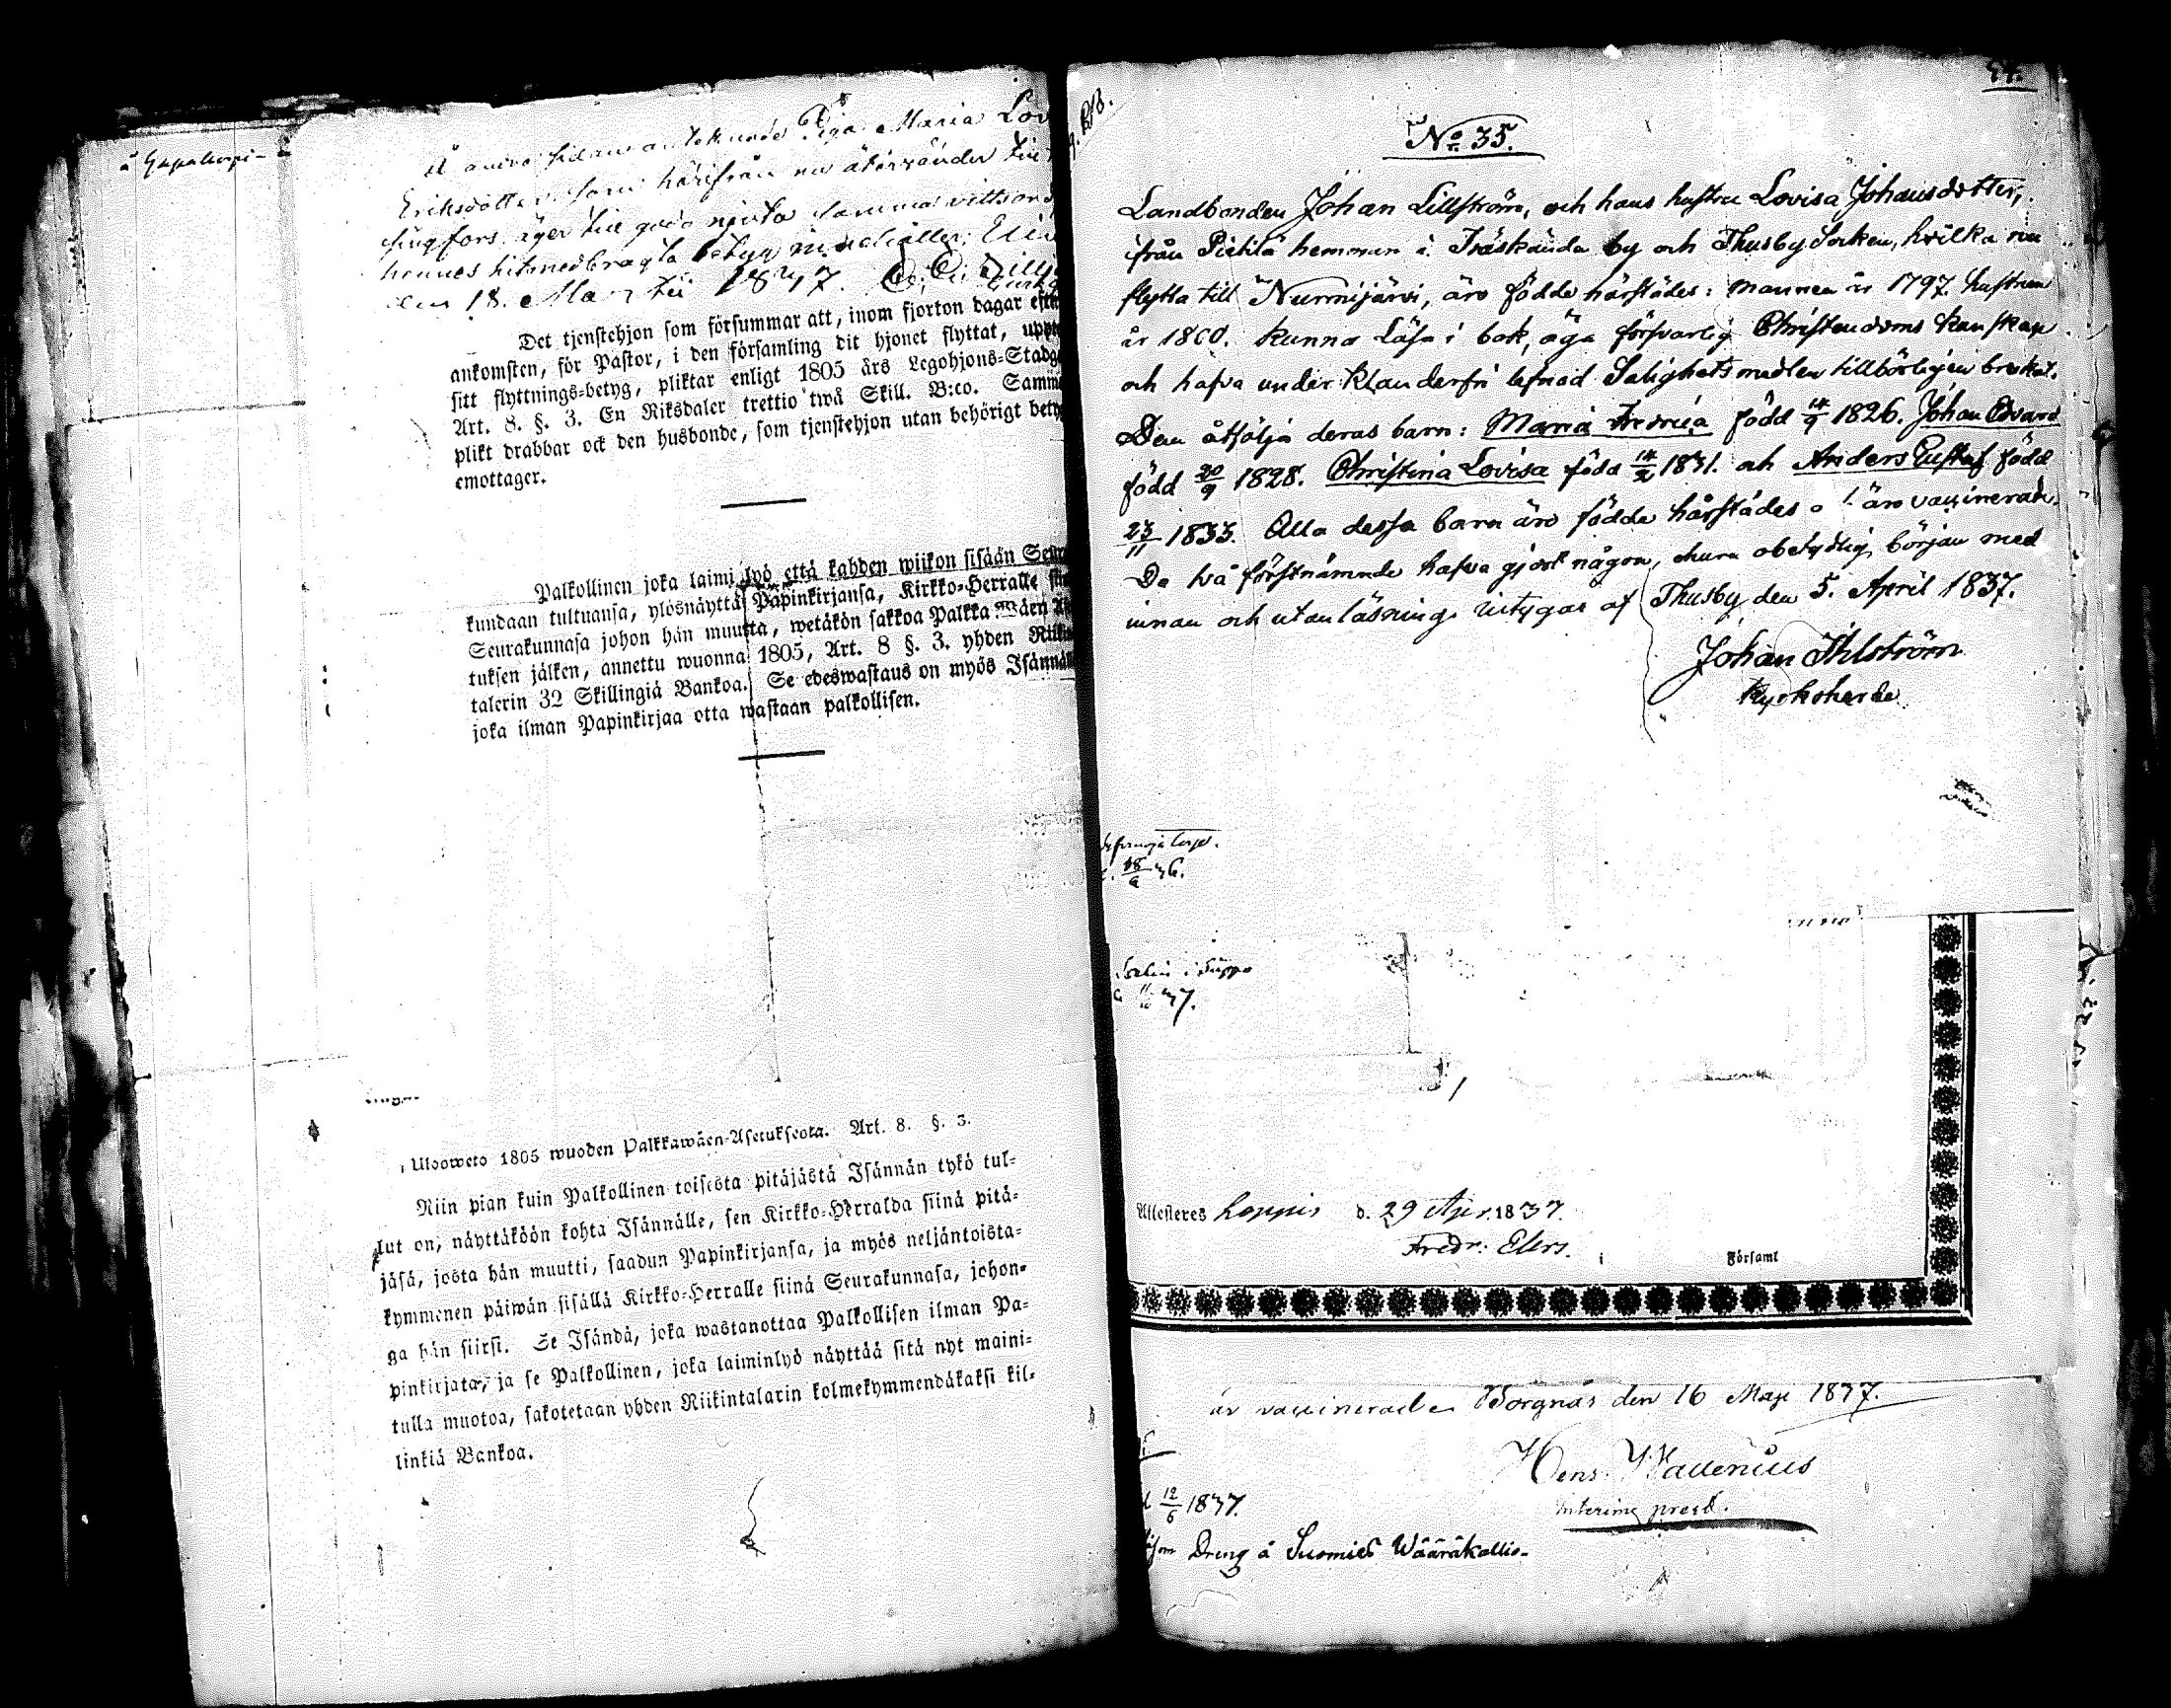 å andra sidan antecknade Piga Maria Lov
Eriksdotter som härifrån nu återvänder till
singfors äger till godo njuta samma vittsord
hennes hitmedbragta betyg innehåller;
den 18. Martii 1837.
Det tjenstehjon som försummar att, inom fjorton dagar efter
ankomsten, för Pastor, i den församling dit hjonet flyttat, uppte
sitt flyttnings-betyg, pliktar enligt 1805 års Legohjons-Stadga
Art. 8. §. 3. En Riksdaler trettio två Skill. B:co. Samma
plikt drabbar ock den husbonde, som tjenstehjon utan behörigt bety
emottager.
Palkollinen joka laimi lyö että kahden wiikon sisään Seura
kundaan tultuansa, ylösnäyttä Papinkirjansa, Kirkko-Herralle
Seurakunnasa johon hän muutta, wetäkön sakkoa Palkka wäen
tuksen jälken, annettu wuonna 1805, Art. 8 §. 3. yhden Riikin
talerin 32 Skillingiä Bankoa. Se edeswastaus on myös Isännällä
joka ilman Papinkirjaa otta wastaan palkollisen.
Ulosweto 1805 wuoden Palkkawäen-Asetuksesta. Art. 8. §. 3.
Niin pian kuin Palkollinen toisesta pitäjästä Isännän tykö tul-
lut on, näyttäköön kohta Isännälle, sen Kirkko-Herralda siinä pitä-
jäsä, josta hän muutti, saadun Papinkirjansa, ja myös neljäntoista-
kymmenen päiwän sisällä Kirkko-Herralle siinä Seurakunnasa, johon-
ga hän siirsi. Se Isändä, joka wastanottaa Palkollisen ilman Pa-
pinkirjata, ja se Palkollinen, joka laiminlyö näyttää sitä nyt maini-
tulla muotoa, sakotetaan yhden Riikintalarin kolmekymmendäkaksi kil-
linkiä Bankoa.
No 35.
Landbonden Johan Lillström, och hans hustru Lovisa Johansdotter,
ifrån Pietilä hemman i Träskända by och Thusby Socken, hvilka nu
flytta till Nurmijärvi, äro födde härstädes: mannen år 1797. hustrun
år 1800. kunna Läsa i bok, äga försvarlig Christendoms kunskap
och hafva under klanderfri lefnad Salighetsmedlen tillbörligen brukat.
Dem åtfölja deras barn: Maria Fredrica född 14/9 1826. Johan Edvard
född 20/9 1828. Christina Lovisa född 14/2 1831. och Anders Gustaf född
23/11 1833. Alla dessa barn äro födde härstädes o äro vaccinerade.
De två förstnämnde hafva gjort någon, ehuru obetydlig, början med
innan och utanläsning. Intygar af Thusby den 5. April 1837.
Johan Ihlström
Kyrkoherde
18/6 36.
37.
Attesteres Loppis d. 29 Apr. 1837.
Fredr. Elers.
i Församl
är vaccinerade Borgnäs den 16 Maji 1837.
Hens. Wallenius
interims prest.
12/6 1837.
som Dreng å Suomies Wääräkallio